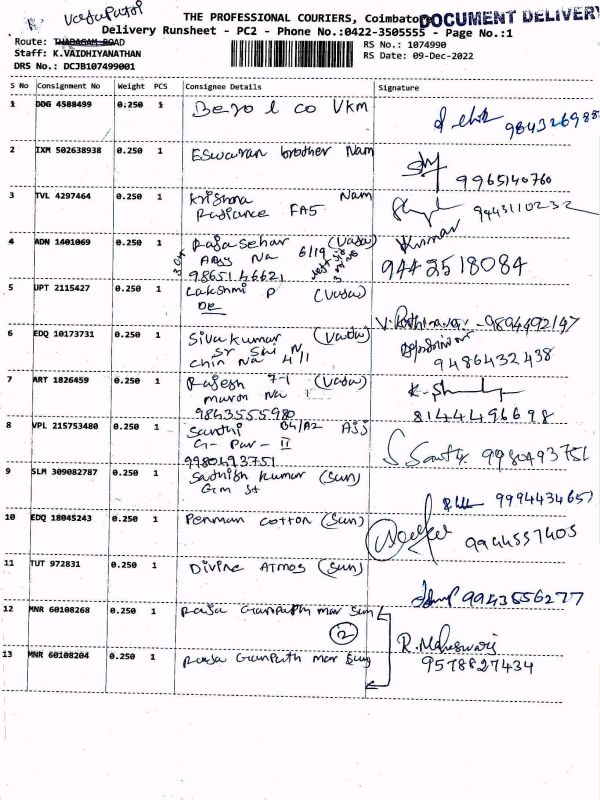 THE PROFESSIONAL COURIERS, Coimbatore
DOCUMENT DELIVERY
Delivery Runsheet - PC2 - Phone No.:0422-3505555 - Page No.:1
Route: THADAGAM ROAD
RS No.: 1074990
Staff: K.VAIDHIYANATHAN
RS Date: 09-Dec-2022
DRS No.: DCJB107499001
S No Consignment No Weight PCS Consignee Details Signature
1 DDG 4588499 0.250 1 Bezo l co Vkm
2 IXM 502638938 0.250 1 Eswaran brother Nam
9965140760
3 TVL 4297464 0.250 1 Krishna Nam
Radiance FAS
9443110232
4 ADN 1401069 0.250 1 Raja Sehar (Vada)
Kumar
6/19
9865146621
9442518084
5 UPT 2115427 0.250 1 Lakshmi P (Vada)
9894492147
6 EDQ 10173731 0.250 1 Siva kumar (Vada)
Sr Sai N
Chin Na 4/1
9486432438
7 ART 1826459 0.250 1 Rajesh 7-1 (Vada)
9843555980
8144496698
8 VPL 215753480 0.250 1 Santhi B4/A2 Ajj
G- Par - II
9980493751
S. Santhi 9980493751
9 SLM 309082787 0.250 1 Sathish Kumar (Sun)
Gm St
10 EDQ 18045243 0.250 1 Penman Cotton (Sun)
9944557405
11 TUT 972831 0.250 1 Divine Atmos (Sun)
9943556277
12 MNR 60108268 0.250 1 Raja Ganpath mar Sun
2
R. Maheswari
9578827434
13 MNR 60108204 0.250 1 Raja Ganpath mar Sun